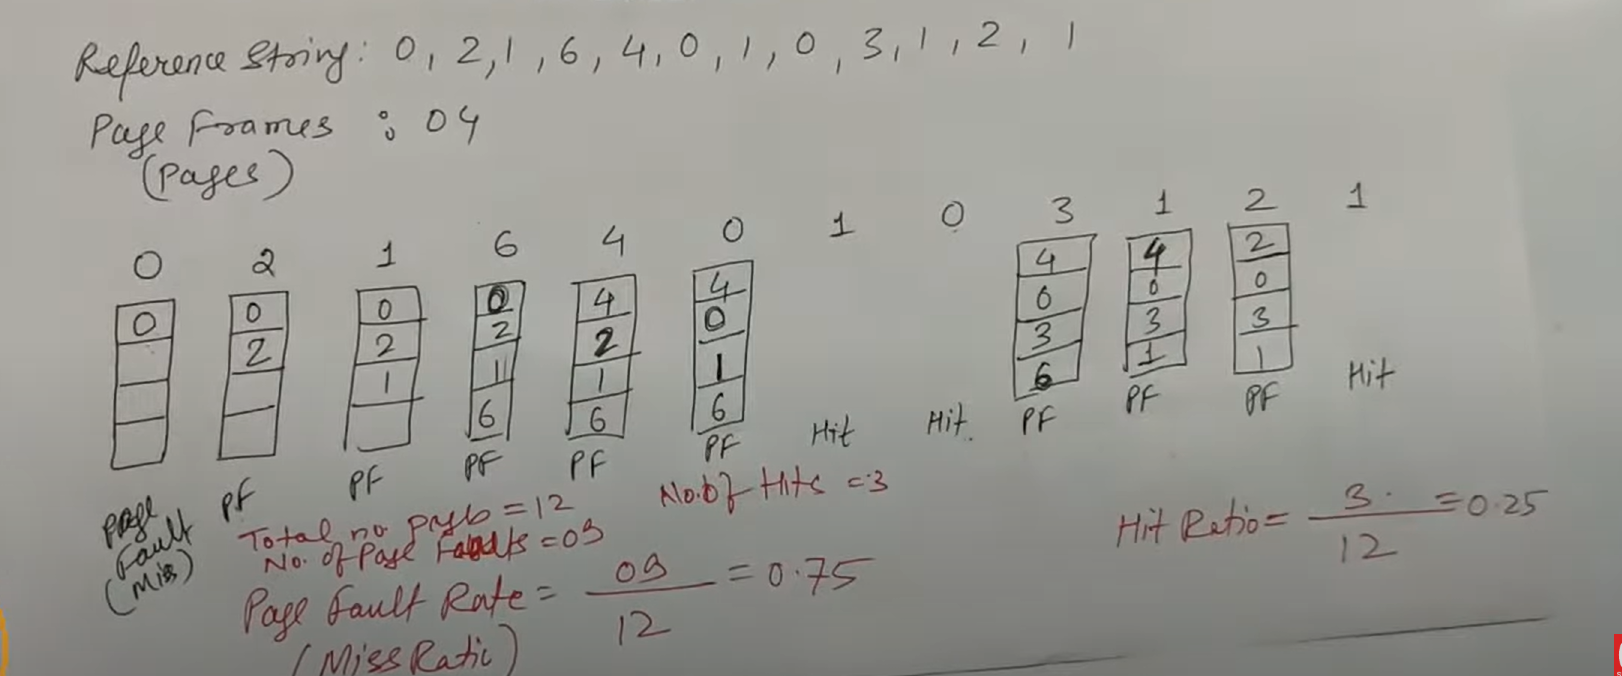 Reference String: 0, 2, 1, 6, 4, 0, 1, 0, 3, 1, 2, 1
Page Frames : 04
(Pages)
0 2 1 6 4 0 1 0 3 1 2 1
0 0 0 0 4 4 4 4 2
2 2 2 2 0 0 0 0
1 1 1 1 3 3 3
6 6 6 6 1 1
Page Fault (Miss) PF PF PF PF PF Hit Hit. PF PF PF Hit
Total no = 12
No. of Page Faults = 09
No. of Hits = 3
Page Fault Rate = 09/12 = 0.75
(Miss Ratio)
Hit Ratio = 3/12 = 0.25